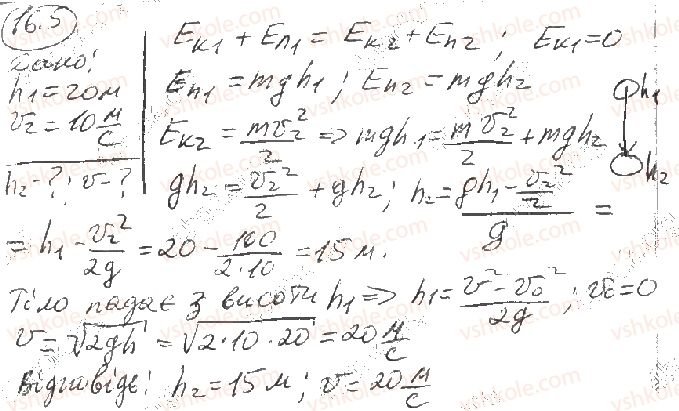 16.5
Дано:
h₁ = 20 м
v₂ = 10 м/с
h₂ - ?; v - ?
Eк₁ + Eп₁ = Eк₂ + Eп₂; Eк₁ = 0
Eп₁ = mgh₁; Eп₂ = mgh₂
Eк₂ = mv₂²/2 => mgh₁ = mv₂²/2 + mgh₂
gh₂ = v₂²/2 + gh₂; h₂ = (gh₁ - v₂²/2)/g =
h₁
h₂
= h₁ - v₂²/2g = 20 - 100/(2·10) = 15 м.
Тіло падає з висоти h₁ => h₁ = (v² - v₀²)/2g; v₀ = 0
v = √2gh = √2·10·20 = 20 м/с
Відповідь: h₂ = 15 м; v = 20 м/с
vshkole.com